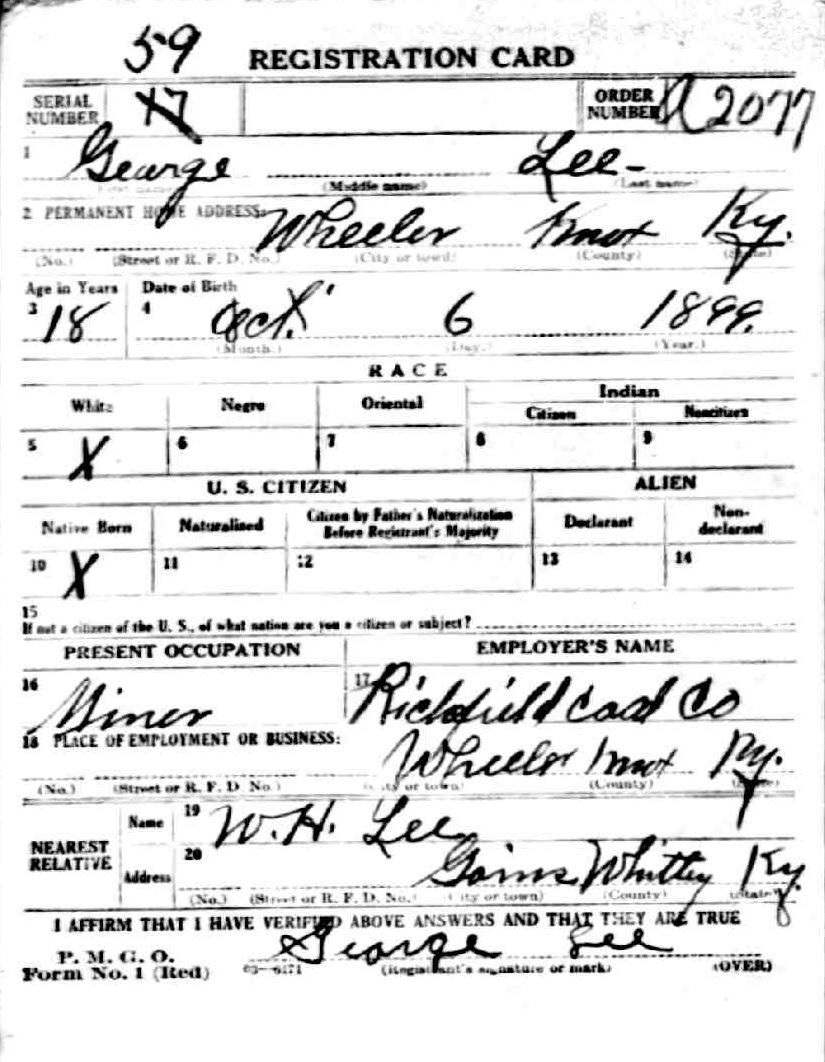 59 REGISTRATION CARD
SERIAL NUMBER 17 ORDER NUMBER A2077
1 George Lee
(First name) (Middle name) (Last name)
2 PERMANENT HOME ADDRESS: Wheeler Knox Ky.
(No.) (Street or R. F. D. No.) (City or town) (County) (State)
Age in Years Date of Birth
3 18 4 Oct. 6 1899.
(Month.) (Day.) (Year.)
RACE
White Negro Oriental Indian
Citizen Noncitizen
5 X 6 7 8 9
U. S. CITIZEN ALIEN
Native Born Naturalized Citizen by Father's Naturalization Before Registrant's Majority Declarant Non-declarant
10 X 11 12 13 14
15
If not a citizen of the U. S., of what nation are you a citizen or subject?
PRESENT OCCUPATION EMPLOYER'S NAME
16 Miner 17 Richfield Coal Co
18 PLACE OF EMPLOYMENT OR BUSINESS:
Wheeler Knox Ky.
(No.) (Street or R. F. D. No.) (City or town) (County) (State)
NEAREST RELATIVE Name 19 W. H. Lee
Address 20 Goins Whitley Ky.
(No.) (Street or R. F. D. No.) (City or town) (County) (State)
I AFFIRM THAT I HAVE VERIFIED ABOVE ANSWERS AND THAT THEY ARE TRUE
P. M. G. O.
Form No. 1 (Red) 03—6171 George Lee
(Registrant's signature or mark) (OVER)